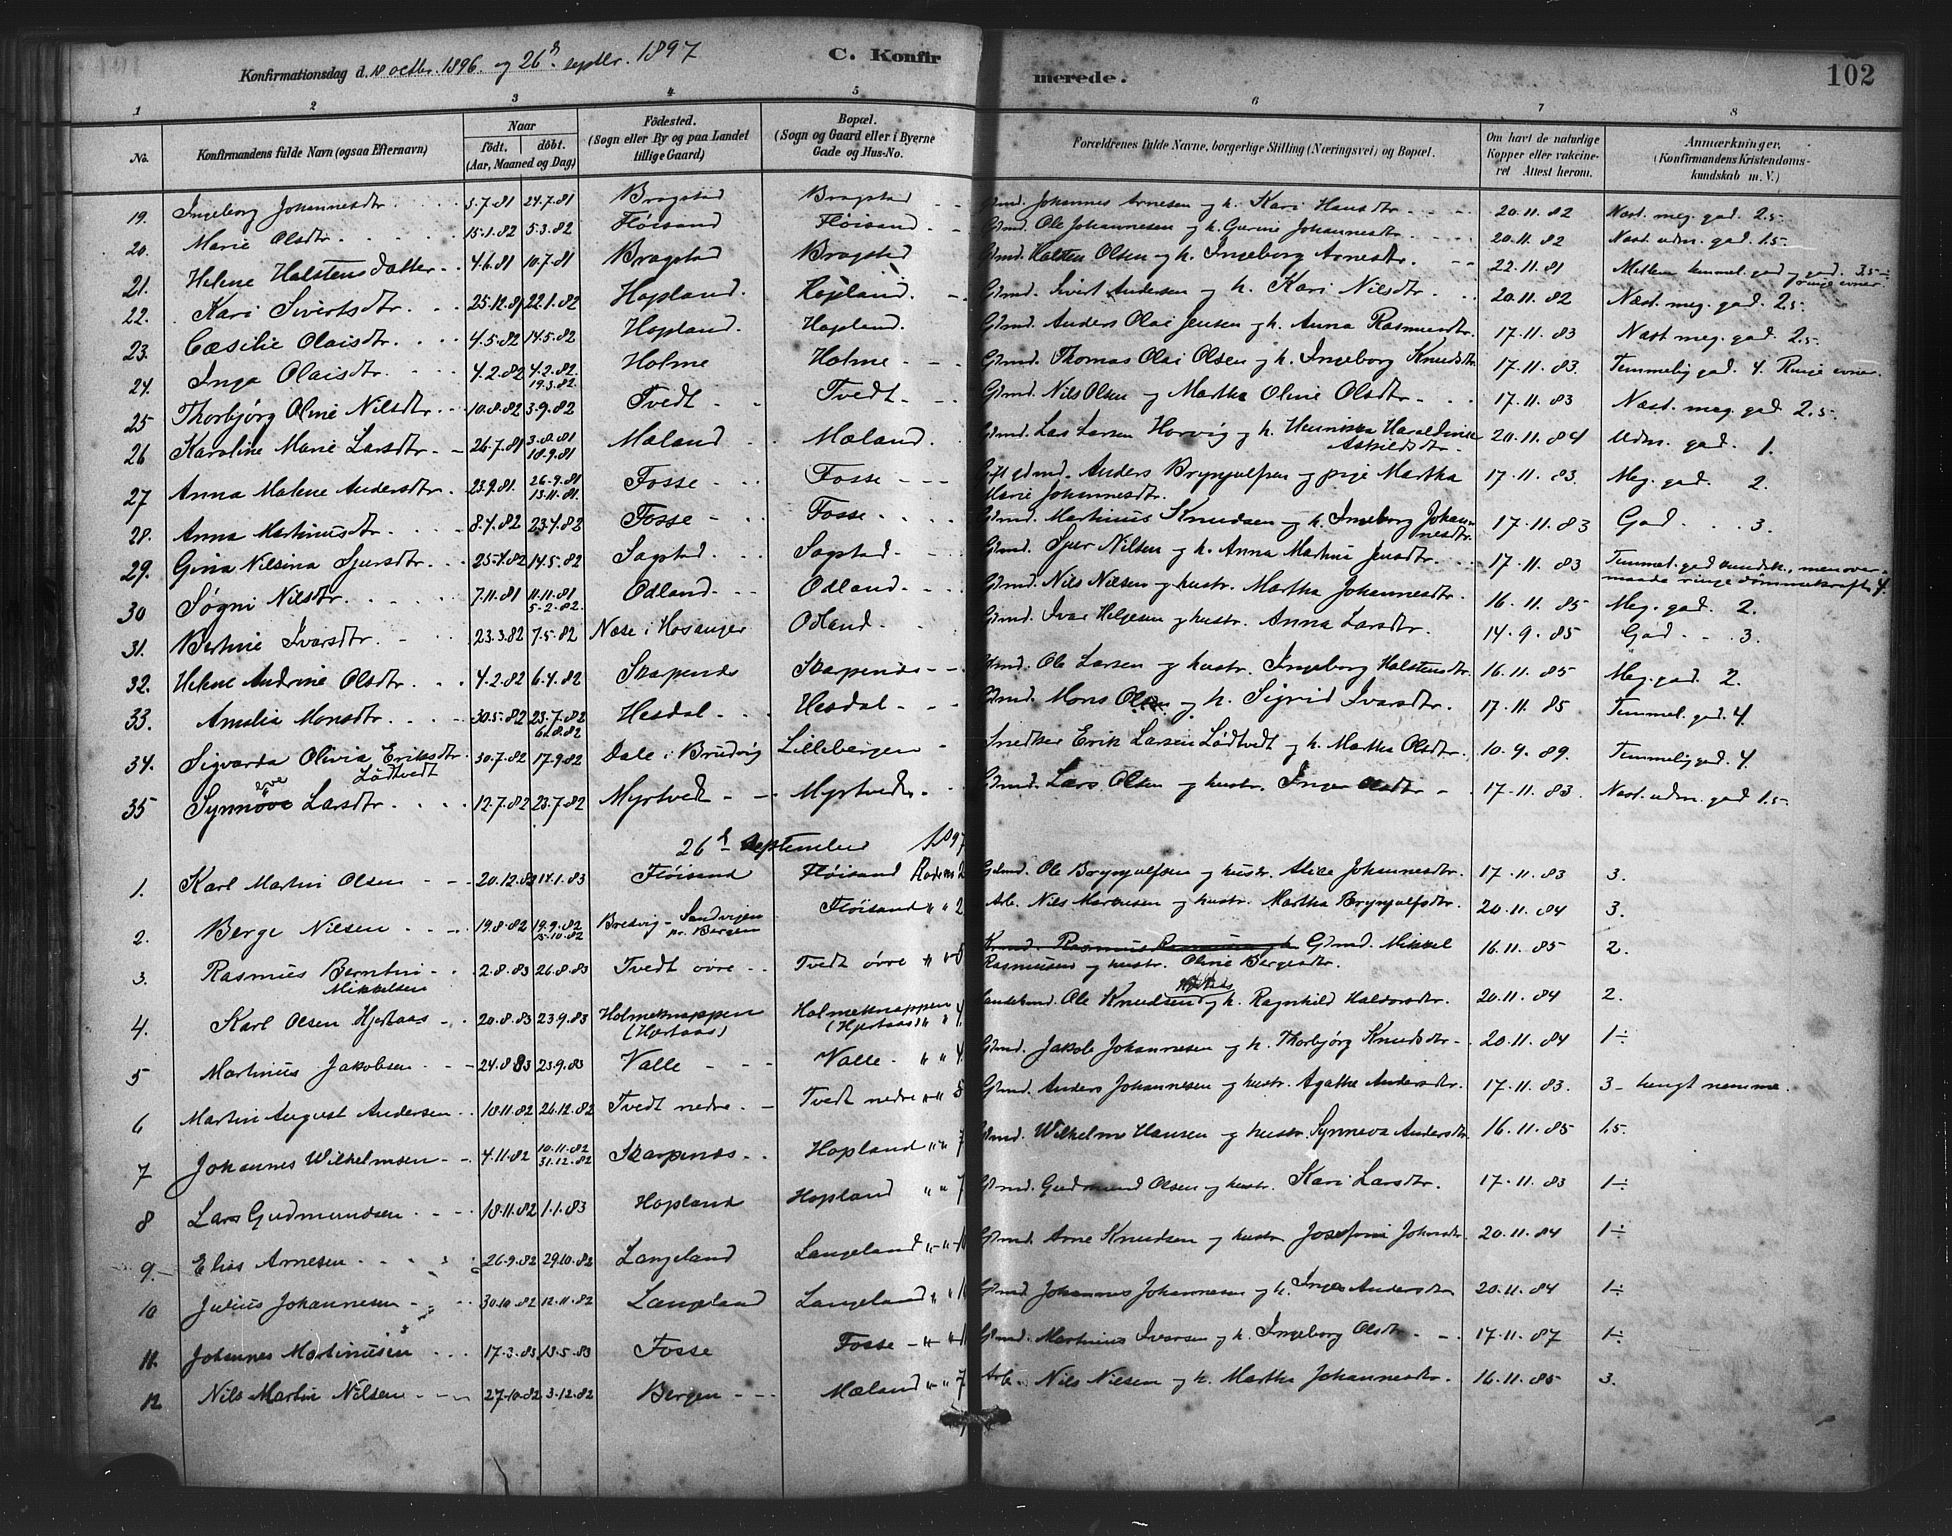 Konfirmationsdag d. 18 octbr. 1896. og 26de septbr. 1897 C. Konfirmerede. 102
1 2 3 4 5 6 7 8
No. Konfirmandens fulde Navn (ogsaa Efternavn) Naar födt. döbt. (Aar, Maaned og Dag) Födested. (Sogn eller By og paa Landet tillige Gaard) Bopæl. (Sogn og Gaard eller i Byerne Gade og Hus-No. Forældrenes fulde Navne, borgerlige Stilling (Næringsvei) og Bopæl. Om havt de naturlige Kopper eller vakcineret Attest herom. Anmærkninger, (Konfirmandens Kristendomskundskab m. V.)
19. Ingeborg Johannesdtr. 3.7.81 24.7.81 Bragstad Bragstad Gbmd. Johannes Arnesen og h. Kari Hansdtr. 20.11.82 Næst. meg. god. 2.5
20. Marie Olsdtr. 15.1.82 5.3.82 Fløisand Fløisand. Gbmd. Ole Johannesen og h. Gurine Johannesdtr. 20.11.82 Næst. udm. god. 1.5
21. Helene Halstensdatter 4.6.81 10.7.81 Bragstad Bragsted Gbmd. Halsten Olsen og h. Ingeborg Arnesdtr. 22.11.81 Mellem temmel. god og god. 3.5 ringe evner.
22. Kari Sivertsdtr. 25.12.81 22.1.82 Hopland. Hopland. Gbmd. Sivert Andersen og h. Kari Nilsdtr. 20.11.82 Næst. meg. god. 2.5
23. Cæsilie Olaisdtr. 4.5.82 14.5.82 Hopland. Hopland. Gbmd. Anders Olai Jensen og h. Anna Rasmusdtr. 17.11.83 Næst. meg. god. 2.5
24. Inga Olaisdtr. 4.2.82 4.2.82. 19.3.82. Holme Holme Gbmd. Thomas Olai Olsen og h. Ingeborg Knudsdtr. 17.11.83. Temmelig god. 4. Ringe evner.
25 Thorbjørg Oline Nilsdtr. 10.8.82 3.9.82 Tvedt Tvedt Gbmd. Nils Olsen og Martha Oline Olsdtr. 17.11.83 Næst. meg. god 2.5
26 Karoline Marie Larsdtr. 26.7.81 18.9.81 Mæland Mæland. Gbmd. Lars Larsen Horvig og h. Askildsdtr. 20.11.84 Udm. god. 1.
27 Anna Malene Andersdtr. 23.9.81. 26.9.81 13.11.81. Fosse Fosse Gift gbmd. Anders Brynjulfsen og pige Martha Marie Johannesdtr. 17.11.83. Meg. god. 2.
28. Anna Martinusdtr. 8.4.82 23.4.82 Fosse Fosse Gbmd. Martinus Knudsen og h. Ingeborg Johannesdtr. 17.11.83 God 3.
29. Gina Nilsina Sjursdtr. 25.4.82 14.5.82 Sagstad. Sagstad. Gbmd. Sjur Nilsen og h. Anna Martha Jensdtr. 17.11.83 Temmel. god kundsk., men overmaade ringe dømmekraft. 4.
30 Søgni Nilsdtr. 7.11.81 11.11.81 5.2.82. Odland. Odland. Gbmd. Nils Nilsen og hustr. Martha Johannesdtr. 16.11.85 Meg. god. 2.
31. Bertine Ivarsdtr. 23.3.82 7.5.82 Næse i Hosanger Odland. Gbmd. Ivar Helgesen og hustr. Anna Larsdtr. 14.9.85 God. 3.
32. Helene Andrine Olsdtr. 4.2.82 6.4.82 Skapenes Skarpenæs Gbmd. Ole Larsen og hustr. Ingeborg Halstensdtr. 16.11.85 Meg. god. 2.
33. Amalia Monsdtr. 30.5.82 23.7.82 6.8.82 Hesdal Hesdal Gbmd. Mons Olsen og h. Sigrid Ivarsdtr. 17.11.85 Temmel. god. 4.
34. Sigvarda Olivia Eriksdtr. Lödtvedt 30.7.82 17.9.82 Dale i Brudvig Lillebergen Snedker Erik Larsen Lödtvedt og h. Martha Olsdtr. 10.9.89. Temmelig god. 4.
35 Synnöve Larsdtr. 12.7.82 23.7.82 Myrtved Myrtvedt Gbmd. Lars Olsen og hustr. Inger Olsdtr 17.11.83. Næst. udm. god 1.5
26de September 1897
1. Karl Martin Olsen 20.12.82 14.1.83 Fløisand Fløisand Rodens 2 Gbmd. Ole Brynjulfsen og hustr. Alice Johannesdtr. 17.11.83 3.
2. Berge Nilsen 19.8.82 19.9.82 15.10.82 Bredvig - Sandvigen pr. Bergen Fløisand " " 2 Arb. Nils Markusen og hustr. Martha Brynjulfsdtr. 20.11.84 3.
3. Rasmus Berntin Mikkelsen 2.8.83 26.8.83 Tvedt øvre Tvedt øvre " " 5 Gbmd. Mikkel Rasmussen og hustr. Oline Bergesdtr. 16.11.85 2.
4. Karl Olsen Hjortaas 20.8.83 23.9.83 Holmeknappen (Hjortaas) Holmeknappen (Hjortaas) " " 4. Ole Knudsen og h. Ragnhild Haldorsdtr. 20.11.84 2.
5 Martinus Jakobsen 24.8.83 23.9.83 Valle Valle " " 4. Gbmd. Jakob Johannesen og h. Thorbjørg Knudsdtr. 20.11.84 1÷
6 Martin August Andersen 18.11.82 26.12.82 Tvedt nedre. Tvedt nedre " " 5 Gbmd. Anders Johannesen og hustr. Agathe Andersdtr. 17.11.83. 3 - tungt nemme.
7 Johannes Wilhelmsen 4.11.82 10.11.82 31.12.82 Skarpenæs Hopland " " 7 Gbmd. Wilhelm Hansen og hustr. Synneva Andersdtr. 16.11.85 1.5
8 Lars Gudmundsen 18.11.82 1.1.83 Hopland Hopland " " 7 Gbmd. Gudmund Olsen og hustr. Kari Larsdtr. 17.11.83 1÷
9. Elias Arnesen 26.9.82 29.10.82 Langeland Langeland " " Gbmd. Arne Knudsen og hustr. Josefine Johnsdtr. 20.11.84 1÷
10 Julius Johannesen 30.10.82 12.11.82 Langeland Langeland " " Gbmd Johannes Johannesen og h. Inger Andersdtr 20.11.84 1÷
11. Johannes Martinusen 17.3.83 13.5.83 Fosse Fosse " " Gbmd. Martinus Ivarsen og h. Ingeborg Olsdtr. 17.11.87 1÷
12 Nils Martin Nilsen 27.10.82 3.12.82 Bergen Mæland " " 7 Arb. Nils Nilsen og h. Martha Johannesdtr. 16.11.85 3.